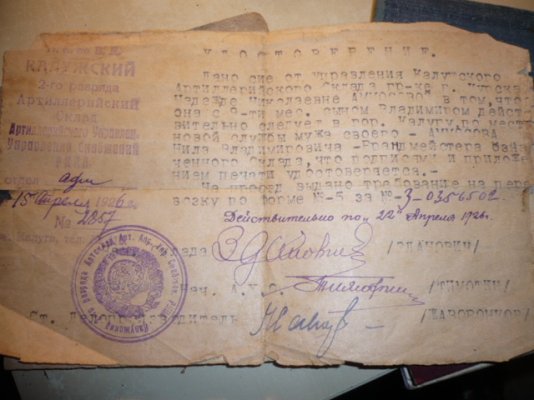 КАЛУЖСКИЙ
2-го разряда
Артиллерийский
Склад
Артиллерийского Управлен.
Управления Снабжений
РККА
отдел адм
15 апреля 1926 г.
№ 2857
г. Калуга, тел.
УДОСТОВЕРЕНИЕ.
Дано сие от управления Калужского
Артиллерийского Склада гр-ке г. Курска
Надежде Николаевне в том, что
она с мес. сыном Владимиром дейст
вительно следует в гор. Калугу по месту
новой службы мужа своего -
Нила Владимировича - Брандмейстера озна
ченного Склада, что подписями и приложе
нием печати удостоверяется. -
На проезд выдано требование на пере
возку по форме № 5 за № 3-0356502
Действительно по „22" Апреля 1926г.
/ЗДАНОВИЧ/
Нач. А.Х.О.
/ТИМОФИН/
Ст. Делопроизводитель
/ЖАВОРОНКОВ/